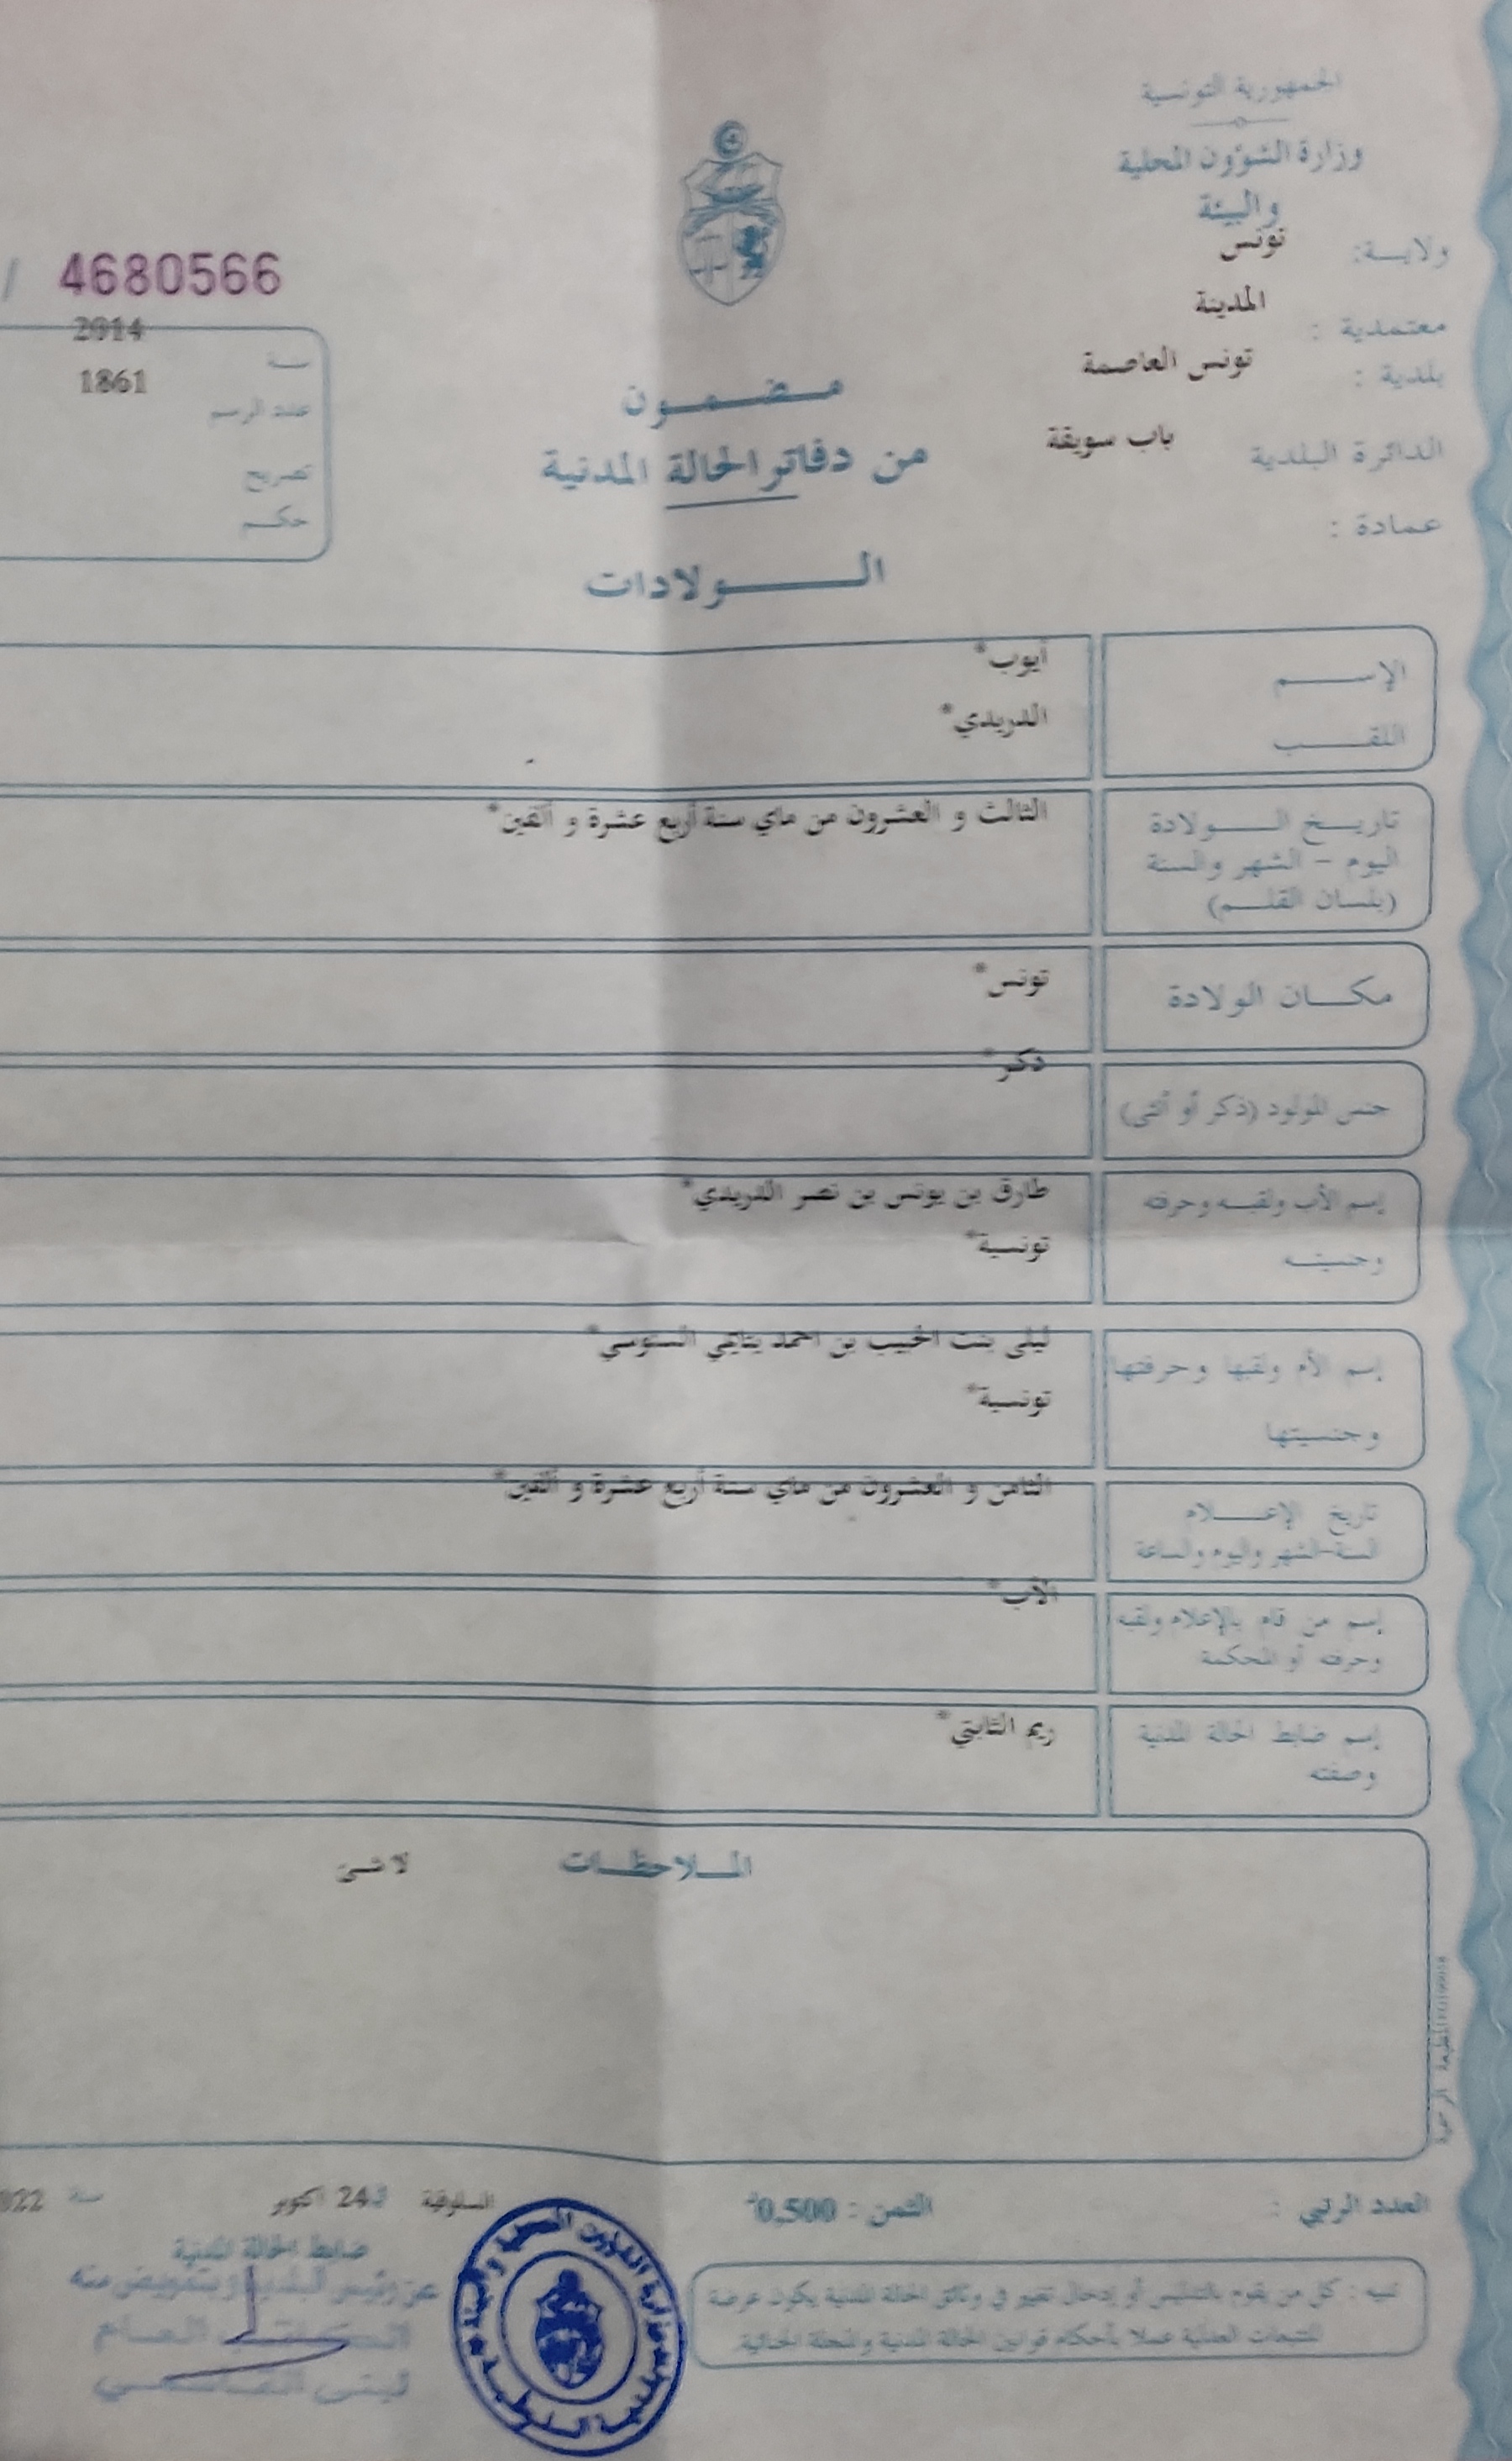 الجمهورية التونسية
وزارة الشؤون المحلية
والبيئة
ولايـــة: تونس
معتمدية : المدينة
بلدية : تونس العاصمة
الدائرة البلدية باب سويقة
عمادة :
4680566 /
سنة 2014
عدد الرسم 1861
تصريح
حكـــم
مـضـمـون
من دفاتر الحالة المدنية
الـــولادات
الإســـــم أيوب*
اللقـــــب الدريدي*
تاريــخ الـــولادة الثالث و العشرون من ماي سنة أربع عشرة و ألفين*
اليوم – الشهر والسنة
(بلسان القلـــم)
مكـــان الولادة تونس*
جنس المولود (ذكر أو أنثى) ذكر*
إسم الأب ولقبـــه وحرفته طارق بن يونس بن نصر الدريدي*
وجنسيتـــه تونسية*
إسم الأم ولقبها وحرفتها ليلى بنت الحبيب بن احمد السنوسي*
وجنسيتها تونسية*
تاريخ الإعـــــلام الثامن و العشرون من ماي سنة أربع عشرة و ألفين*
السنة-الشهر واليوم والساعة
إسم من قام بالإعلام ولقبه الأب*
وحرفته أو المحكمة
إسم ضابط الحالة المدنية ريم الثابتي*
وصفته
المـــلاحظـــات لا شئ
المطبعة الرسمية
العدد الرتبي :
الثمن : 0,500د
السلوقية في 24 اكتوبر سنة 022
ضابط الحالة المدنية
عن رئيس البلدية وبتفويض منه
الكاتب العام
تنبيه : كل من يقوم بالتدليس أو إدخال تغيير في وثائق الحالة المدنية يكون عرضة
للتتبعات العدلية عملا بأحكام قوانين الحالة المدنية والمجلة الجنائية
وزارة الشؤون المحلية والبيئة